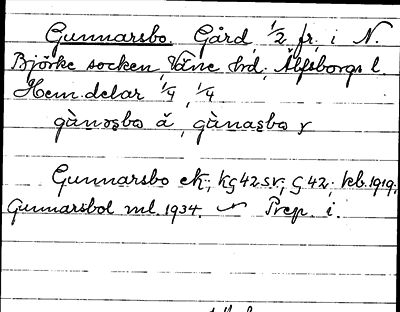 Gunnarsbo. Gård, 1/2 fr, i N.
Björke socken, Väne hd, Älfsborgs l.
Hem.delar 1/4, 1/4
gànas̰bo ă, gànas̰bo y
Gunnarsbo ek; kg 42 sv; G 42; kb. 1919;
Gunnarsbol ml. 1934. ~ Prep. i.